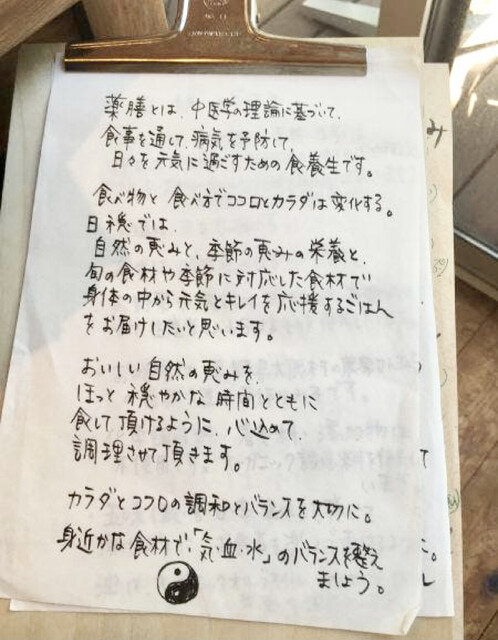 薬膳とは、中医学の理論に基づいて、
食事を通して、病気を予防して、
日々を元気に過ごすための食養生です。
食べ物と食べ方でココロとカラダは変化する。
日穏では、
自然の恵みと、季節の恵みの栄養と、
旬の食材や季節に対応した食材で
身体の中から元気とキレイを応援するごはん
をお届けしたいと思います。
おいしい自然の恵みを、
ほっと穏やかな時間とともに
食して頂けるように、心込めて、
調理させて頂きます。
カラダとココロの調和とバランスを大切に。
身近かな食材で、「気・血・水」のバランスを整え
ましょう。
み